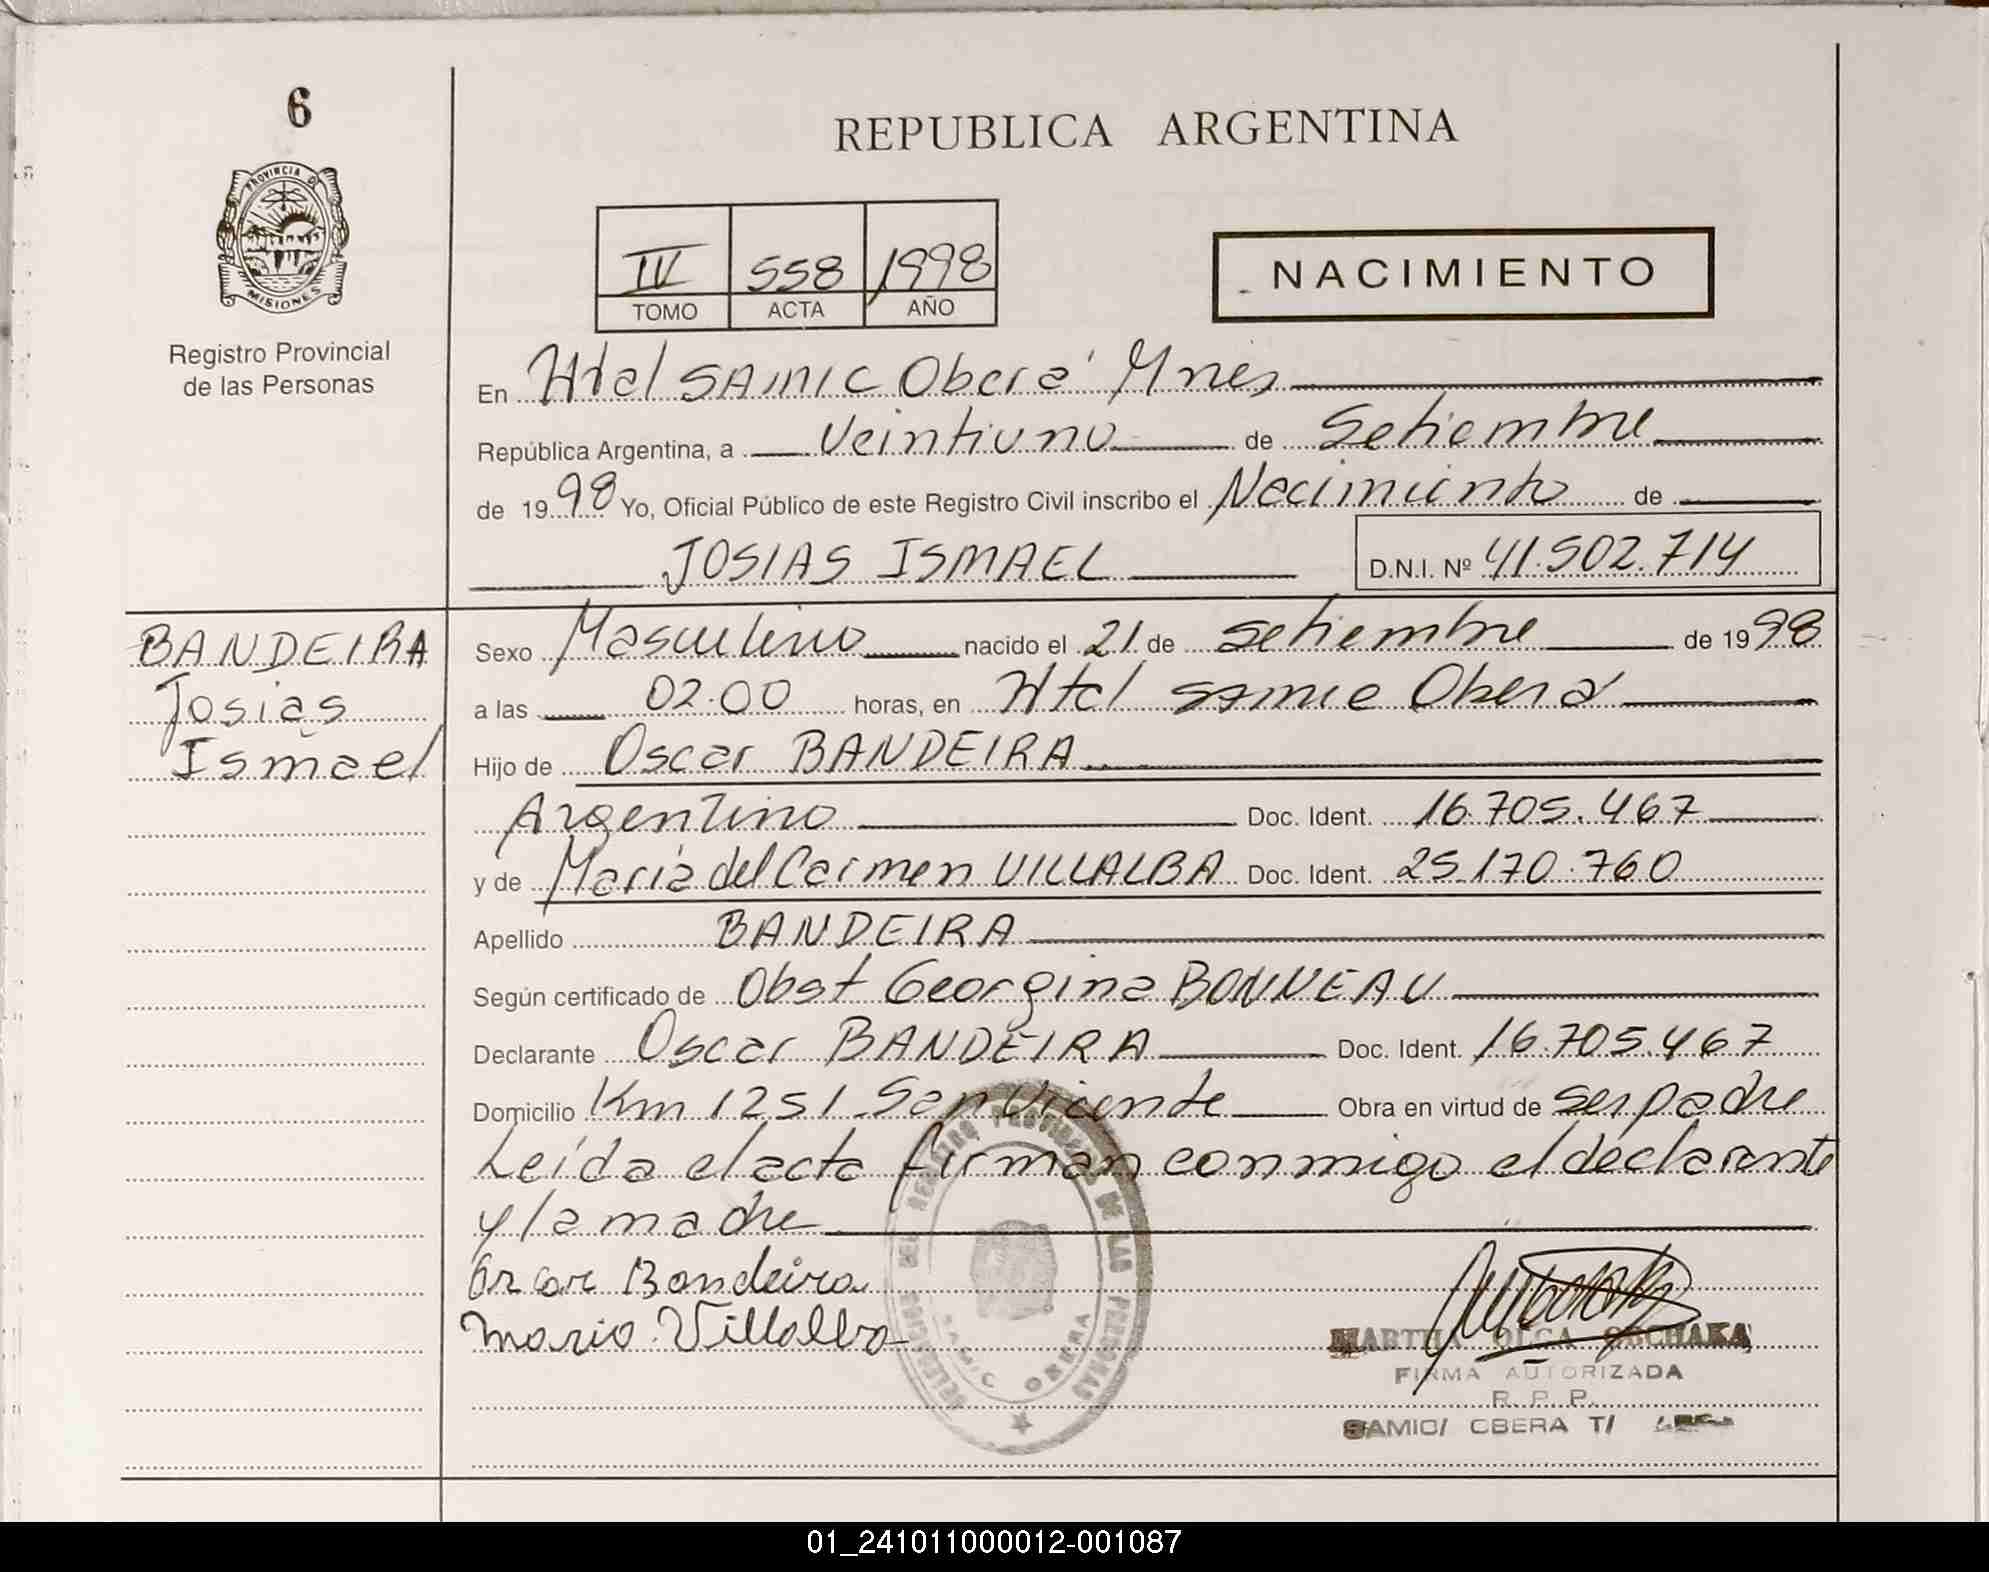 6
REPUBLICA ARGENTINA
PROVINCIA D
MISIONES
Registro Provincial
de las Personas
IV 558 1998
TOMO ACTA AÑO
NACIMIENTO
En Htal SAMIC Oberá Mnes
República Argentina, a Veintiuno de Setiembre
de 1998 Yo, Oficial Público de este Registro Civil inscribo el Nacimiento de
JOSIAS ISMAEL D.N.I. Nº 41.502.714
BANDEIRA
Josias
Ismael
Sexo Masculino nacido el 21 de setiembre de 1998
a las 02.00 horas, en Htal SAMIC Oberá
Hijo de Oscar BANDEIRA
Argentino Doc. Ident. 16.705.467
y de María del Carmen VILLALBA Doc. Ident. 25.170.760
Apellido BANDEIRA
Según certificado de Obst Georgina BONNEAU
Declarante Oscar BANDEIRA Doc. Ident. 16.705.467
Domicilio Km 1251 San Vicente Obra en virtud de ser padre
Leída el acta firman conmigo el declarante
y la madre
Oscar Bandeira
Maria Villalba
DEL REGISTRO PROVINCIAL DE LAS PERSONAS
SAMIC OBERA
MARTHA OLGA
FIRMA AUTORIZADA
R. P. P.
SAMIC/ OBERA T/
01_241011000012-001087